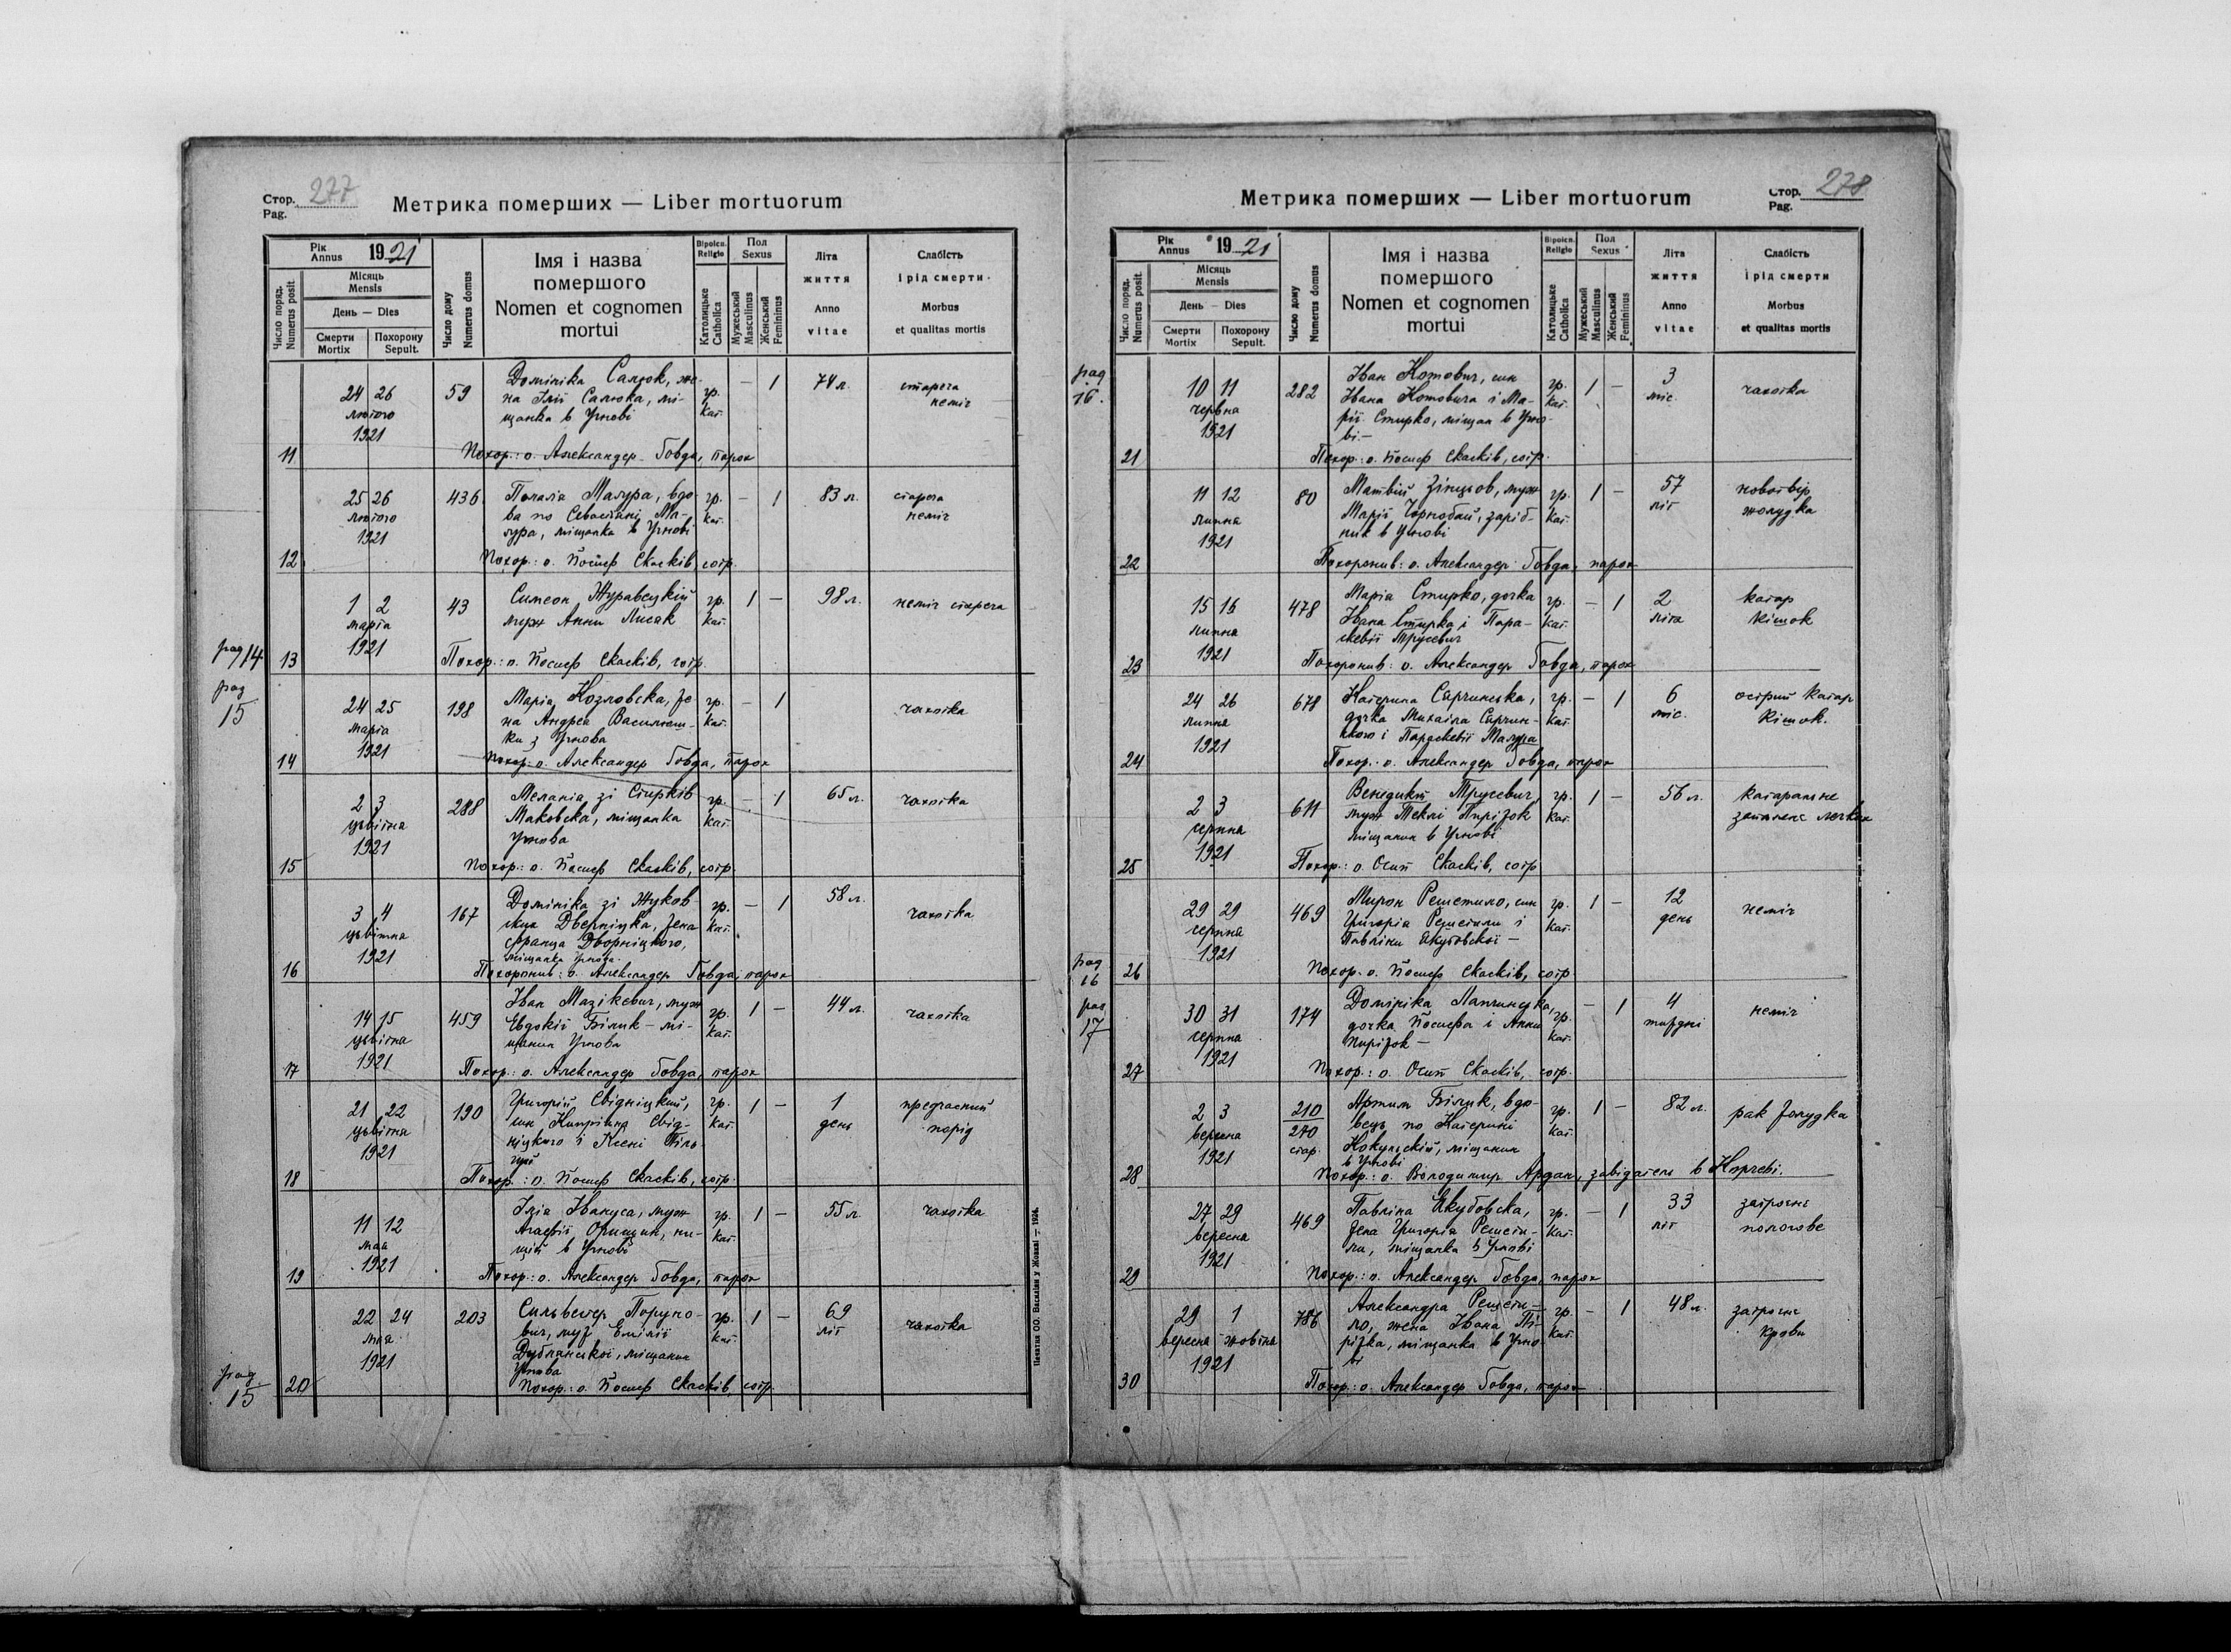 Стор. 277
Pag.
Метрика померших — Liber mortuorum
Рік
Annus 1921
Число поряд.
Numerus posit.
Місяць
Mensis
День — Dies
Смерти
Mortix
Похорону
Sepult.
Число дому
Numerus domus
Імя і назва
помершого
Nomen et cognomen
mortui
Віроісп.
Religio
Католицьке
Catholica
Пол
Sexus
Мужеський
Masculinus
Женський
Femininus
Літа
життя
Anno
vitae
Слабість
і рід смерти
Morbus
et qualitas mortis
24 26 59 Домініка Салюк, же- гр. — 1 74 л. стареча
лютого на Ілії Салюка, мі- кат. неміч
1921 щанка в Угнові
11 Похор.: о. Александер Говда, парох
25 26 436 Пелагія Мазура, вдо- гр. — 1 83 л. стареча
лютого ва по Севастіяні Ма- кат. неміч
1921 зура, міщанка в Угнові
12 Похор.: о. Йосиф Скасків, сотр.
1 2 43 Симеон Журавецкий гр. 1 — 98 л. неміч стареча
марта муж Анни Лисак кат.
1921
рад 14 13 Похор.: о. Йосиф Скасків, сотр.
рад
15
24 25 198 Марія Козловска, же- гр. — 1 чахотка
марта на Андрея кат.
1921 ки з Угнова
14 Похор. о. Александер Говда, парох
2 3 288 Меланія зі Стирків гр. — 1 65 л. чахотка
цьвітня Маковска, міщанка кат.
1921 Угнова
15 Похор.: о. Йосиф Скасків, сотр.
3 4 167 Домініка зі Жуков- гр. — 1 58 л. чахотка
цьвітня ских Дверніцка, жена кат.
1921 Франца Дворніцкого,
міщанка Угнова.
16 Похоронив: о. Александер Говда, парох
14 15 459 Іван Мазікевич, муж гр. 1 — 44 л. чахотка
цьвітня Евдокії Білик — мі- кат.
1921 щанин Угнова
17 Похор.: о. Александер Говда, парох
21 22 190 Григорій Свідніцкий, гр. 1 — 1 предчасний
цьвітня син Кипріяна Свід- кат. день порід
1921 ніцкого і Ксені
18 Похор.: о. Йосиф Скасків, сотр.
11 12 Ілія Івануса, муж гр. 1 — 55 л. чахотка
мая Агафії Орищин, ни- кат.
1921 щій в Угнові
19 Похор.: о. Александер Говда, парох
22 24 203 Сильвестер Поруно- гр. 1 — 69 чахотка
мая вич, муж Емілії кат. літ
1921 Дублянської, міщанин
Угнова
рад
15 20 Похор.: о. Йосиф Скасків, сотр.
Печатня ОО. Василіян у Жовкві — 1926.
Метрика померших — Liber mortuorum
Стор. 278
Pag.
Рік
Annus 1921
Число поряд.
Numerus posit.
Місяць
Mensis
День — Dies
Смерти
Mortix
Похорону
Sepult.
Число дому
Numerus domus
Імя і назва
помершого
Nomen et cognomen
mortui
Віроісп.
Religio
Католицьке
Catholica
Пол
Sexus
Мужеський
Masculinus
Женський
Femininus
Літа
життя
Anno
vitae
Слабість
і рід смерти
Morbus
et qualitas mortis
рад
16.
10 11 282 Іван Котович, син гр. 1 — 3 чахотка
червня Івана Котовича і Ма- кат. міс.
1921 рії Стирко, міщан в Угно-
ві.—
21 Похор. о. Йосиф Скасків, сотр.
11 12 80 Матвій Зінцьов, муж гр. 1 — 57 новотвір
липня Марії Чорнобай, заріб- кат. літ жолудка
1921 ник в Угнові
22 Похоронив: о. Александер Говда, парох
15 16 478 Марія Стирко, дочка гр. — 1 2 катар
липня Івана Стирка і Пара- кат. літа кішок
1921 скевії Трусевич
23 Похоронив: о. Александер Говда, парох
24 26 678 Катерина Сярчинська, гр. — 1 6 острий катар
липня дочка Михаіла Сярчин- кат. міс. кішок.
1921 ского і Параскевії Мазура
24 Похор. о. Александер Говда, парох
2 3 611 Венедикт Трусевич, гр. 1 — 56 л. катаральне
серпня муж Теклі Пиріжок кат. запалене легких
1921 міщанин в Угнові
25 Похор.: о. Осип Скасків, сотр
29 29 469 Мирон Решетило, син гр. 1 — 12 неміч
серпня Григорія Решетила і кат. день
1921 Павліни Якубовскої —
рад
16 26 Похор. о. Йосиф Скасків, сотр
рад
17
30 31 174 Домініка Лапчинська, гр. — 1 4 неміч
серпня дочка Йосифа і Анни кат. тижні
1921 Пиріжок —
27 Похор.: о. Осип Скасків, сотр.
2 3 210 Артим Білик, вдо- гр. 1 — 82 л. рак жолудка
вересня 270 вець по Катерині кат.
1921 стар. міщанин
в Угнові
28 Похор.: о. Володимир Ардан, завідатель в Корчеві.
27 29 469 Павліна Якубовска, гр. — 1 33 затроєнє
вересня жена Григорія Решети- кат. літ пологове
1921 ла, міщанка в Угнові
29 Похор.: о. Александер Говда, парох
29 1 786 Александра Решети- гр. — 1 48 л. затроєнє
вересня жовтня ло, жена Івана Пи- кат. крови
1921 ріжка, міщанка в Угно-
ві
30 Похор.: о. Александер Говда, парох